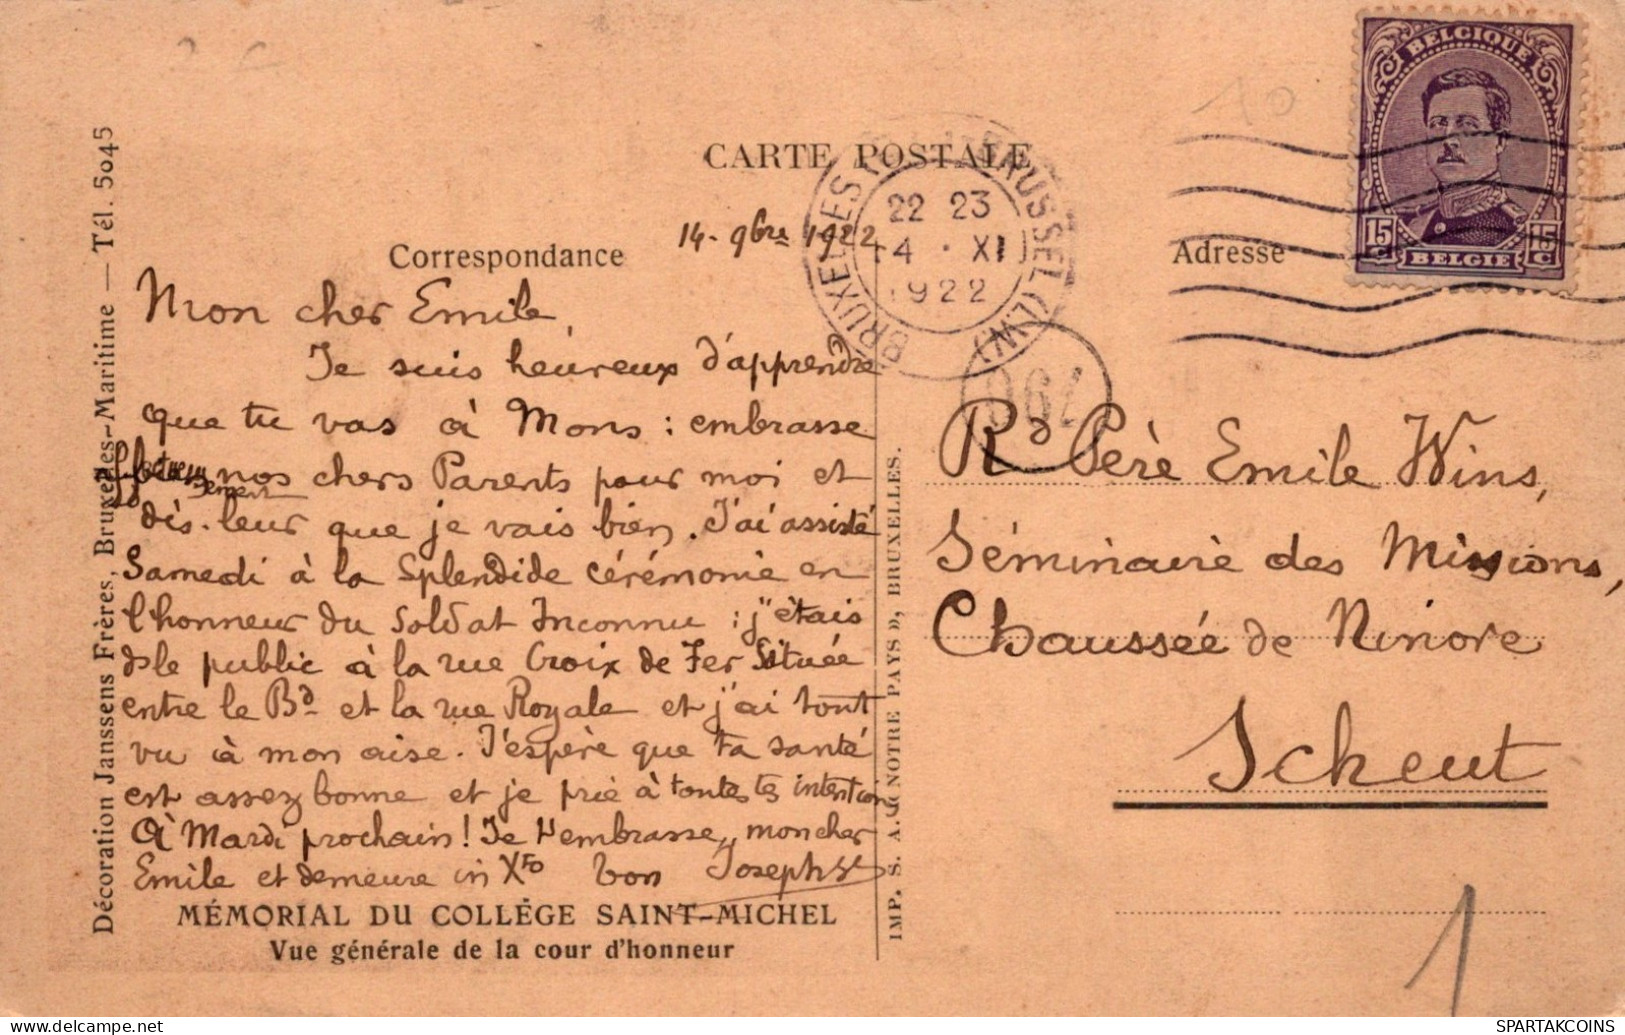 CARTE POSTALE
Correspondance
14. 9bre 1922
Mon cher Emile,
Je suis heureux d'apprendre
que tu vas à Mons : embrasse
affectueusement nos chers Parents pour moi et
dis-leur que je vais bien. J'ai assisté
Samedi à la Splendide cérémonie en
l'honneur du Soldat Inconnu : j'étais
le public à la rue Croix de Fer Située
entre le Bd et la rue Royale et j'ai tout
vu à mon aise. J'espère que ta santé
est assez bonne et je prie à toutes tes intentions
A Mardi prochain ! Je t'embrasse, mon cher
Emile et demeure in Xto ton Joseph
MÉMORIAL DU COLLÈGE SAINT-MICHEL
Vue générale de la cour d'honneur
Décoration Janssens Frères, Bruxelles-Maritime — Tél. 5045
IMP. S. A. NOTRE PAYS, BRUXELLES.
BRUXELLES BRUSSEL (I.W)
22 23
14 · XI
1922
Adresse
BELGIQUE
15 C 15 C
BELGIE
10
Rd Père Emile Wins,
Séminaire des Missions,
Chaussée de Ninove
Scheut
1
SPARTAKCOINS
https://www.delcampe.net
SPARTAKCOINS